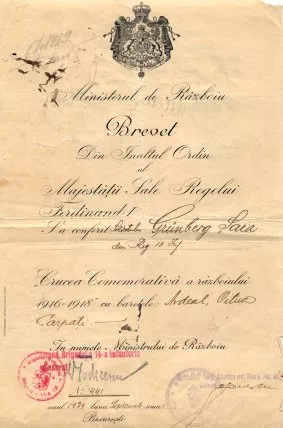 Ministerul de Războiu
Brevet
Din Inaltul Ordin
al
Majestății Sale Regelui
Ferdinand I
S'a conferit Grünberg Saia
din Reg 13 Inf
Crucea Comemorativă a războiului
1916-1918 cu baretele Ardeal, Oituz
Carpati
In numele Ministrului de Războiu
No 441
anul 1924 luna ziua
București